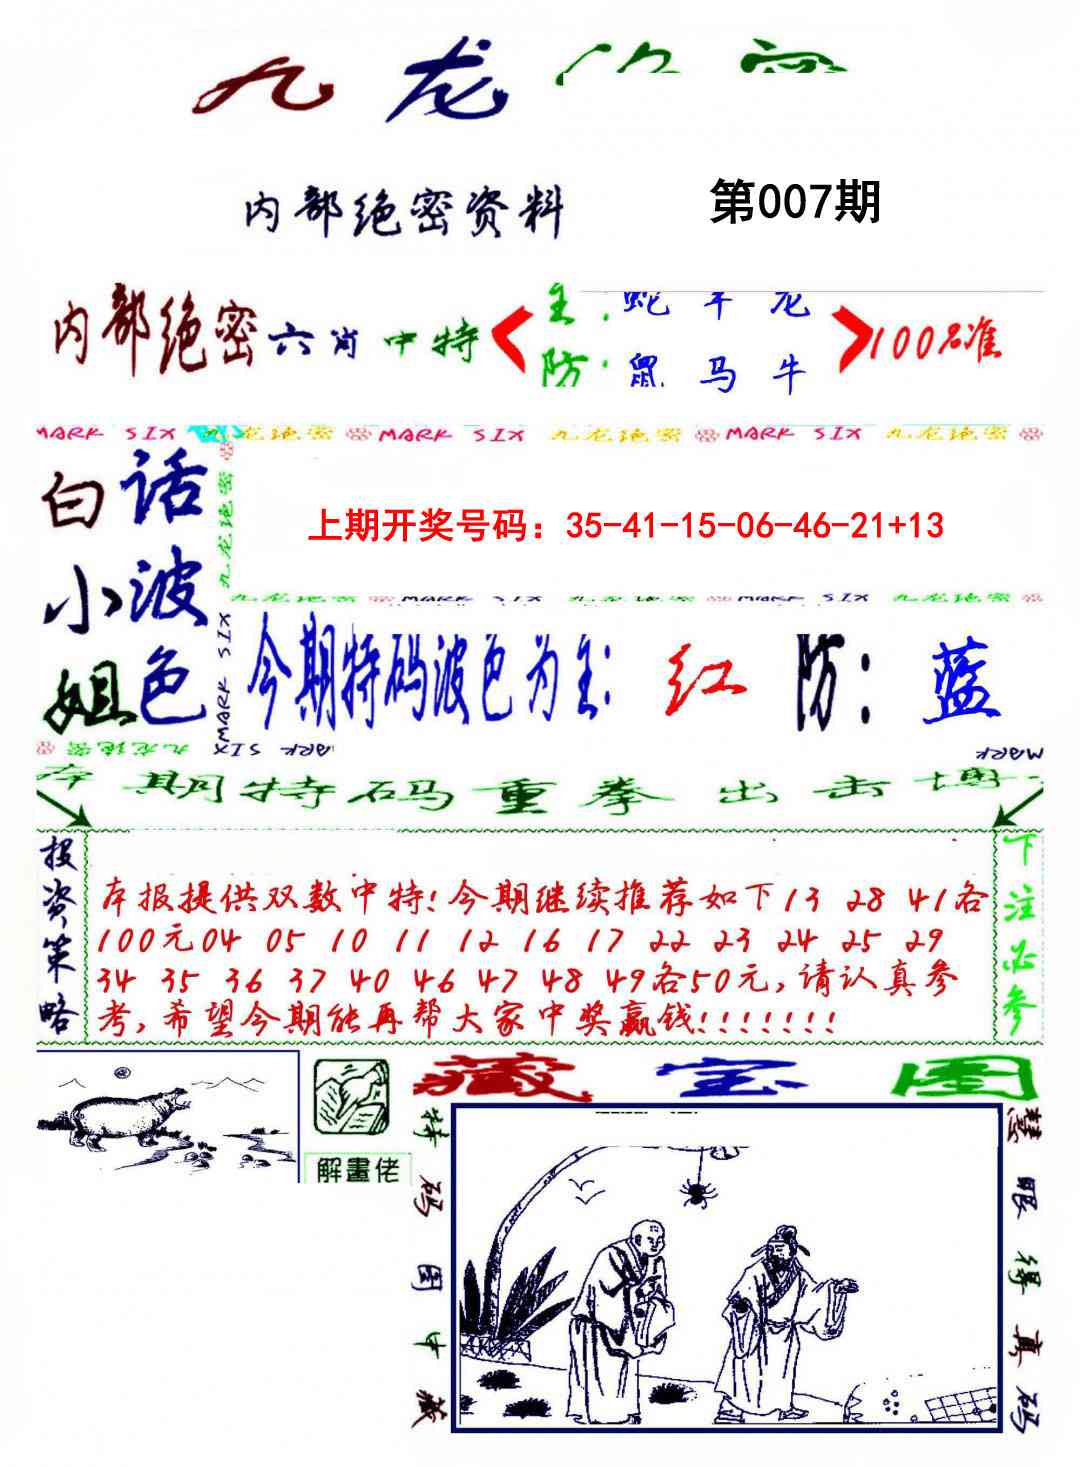 九龙
内部绝密资料
第007期
内部绝密六肖中特
主: 蛇 羊 龙
防: 鼠 马 牛
100%准
MARK SIX 九龙绝密 MARK SIX 九龙绝密 MARK SIX 九龙绝密
白话小波姐色
九龙绝密
MARK SIX
上期开奖号码：35-41-15-06-46-21+13
九龙绝密 MARK SIX 九龙绝密 MARK SIX 九龙绝密
今期特码波色为主: 红 防: 蓝
九龙绝密 MARK SIX
MARK
本期特码重拳出击博
投资策略
本报提供双数中特!今期继续推荐如下13 28 41各
100元04 05 10 11 12 16 17 22 23 24 25 29
34 35 36 37 40 46 47 48 49各50元,请认真参
考,希望今期能再帮大家中奖赢钱!!!!!!!
下注必参
解畫佬
藏宝图
特码图中藏
慧眼得真码